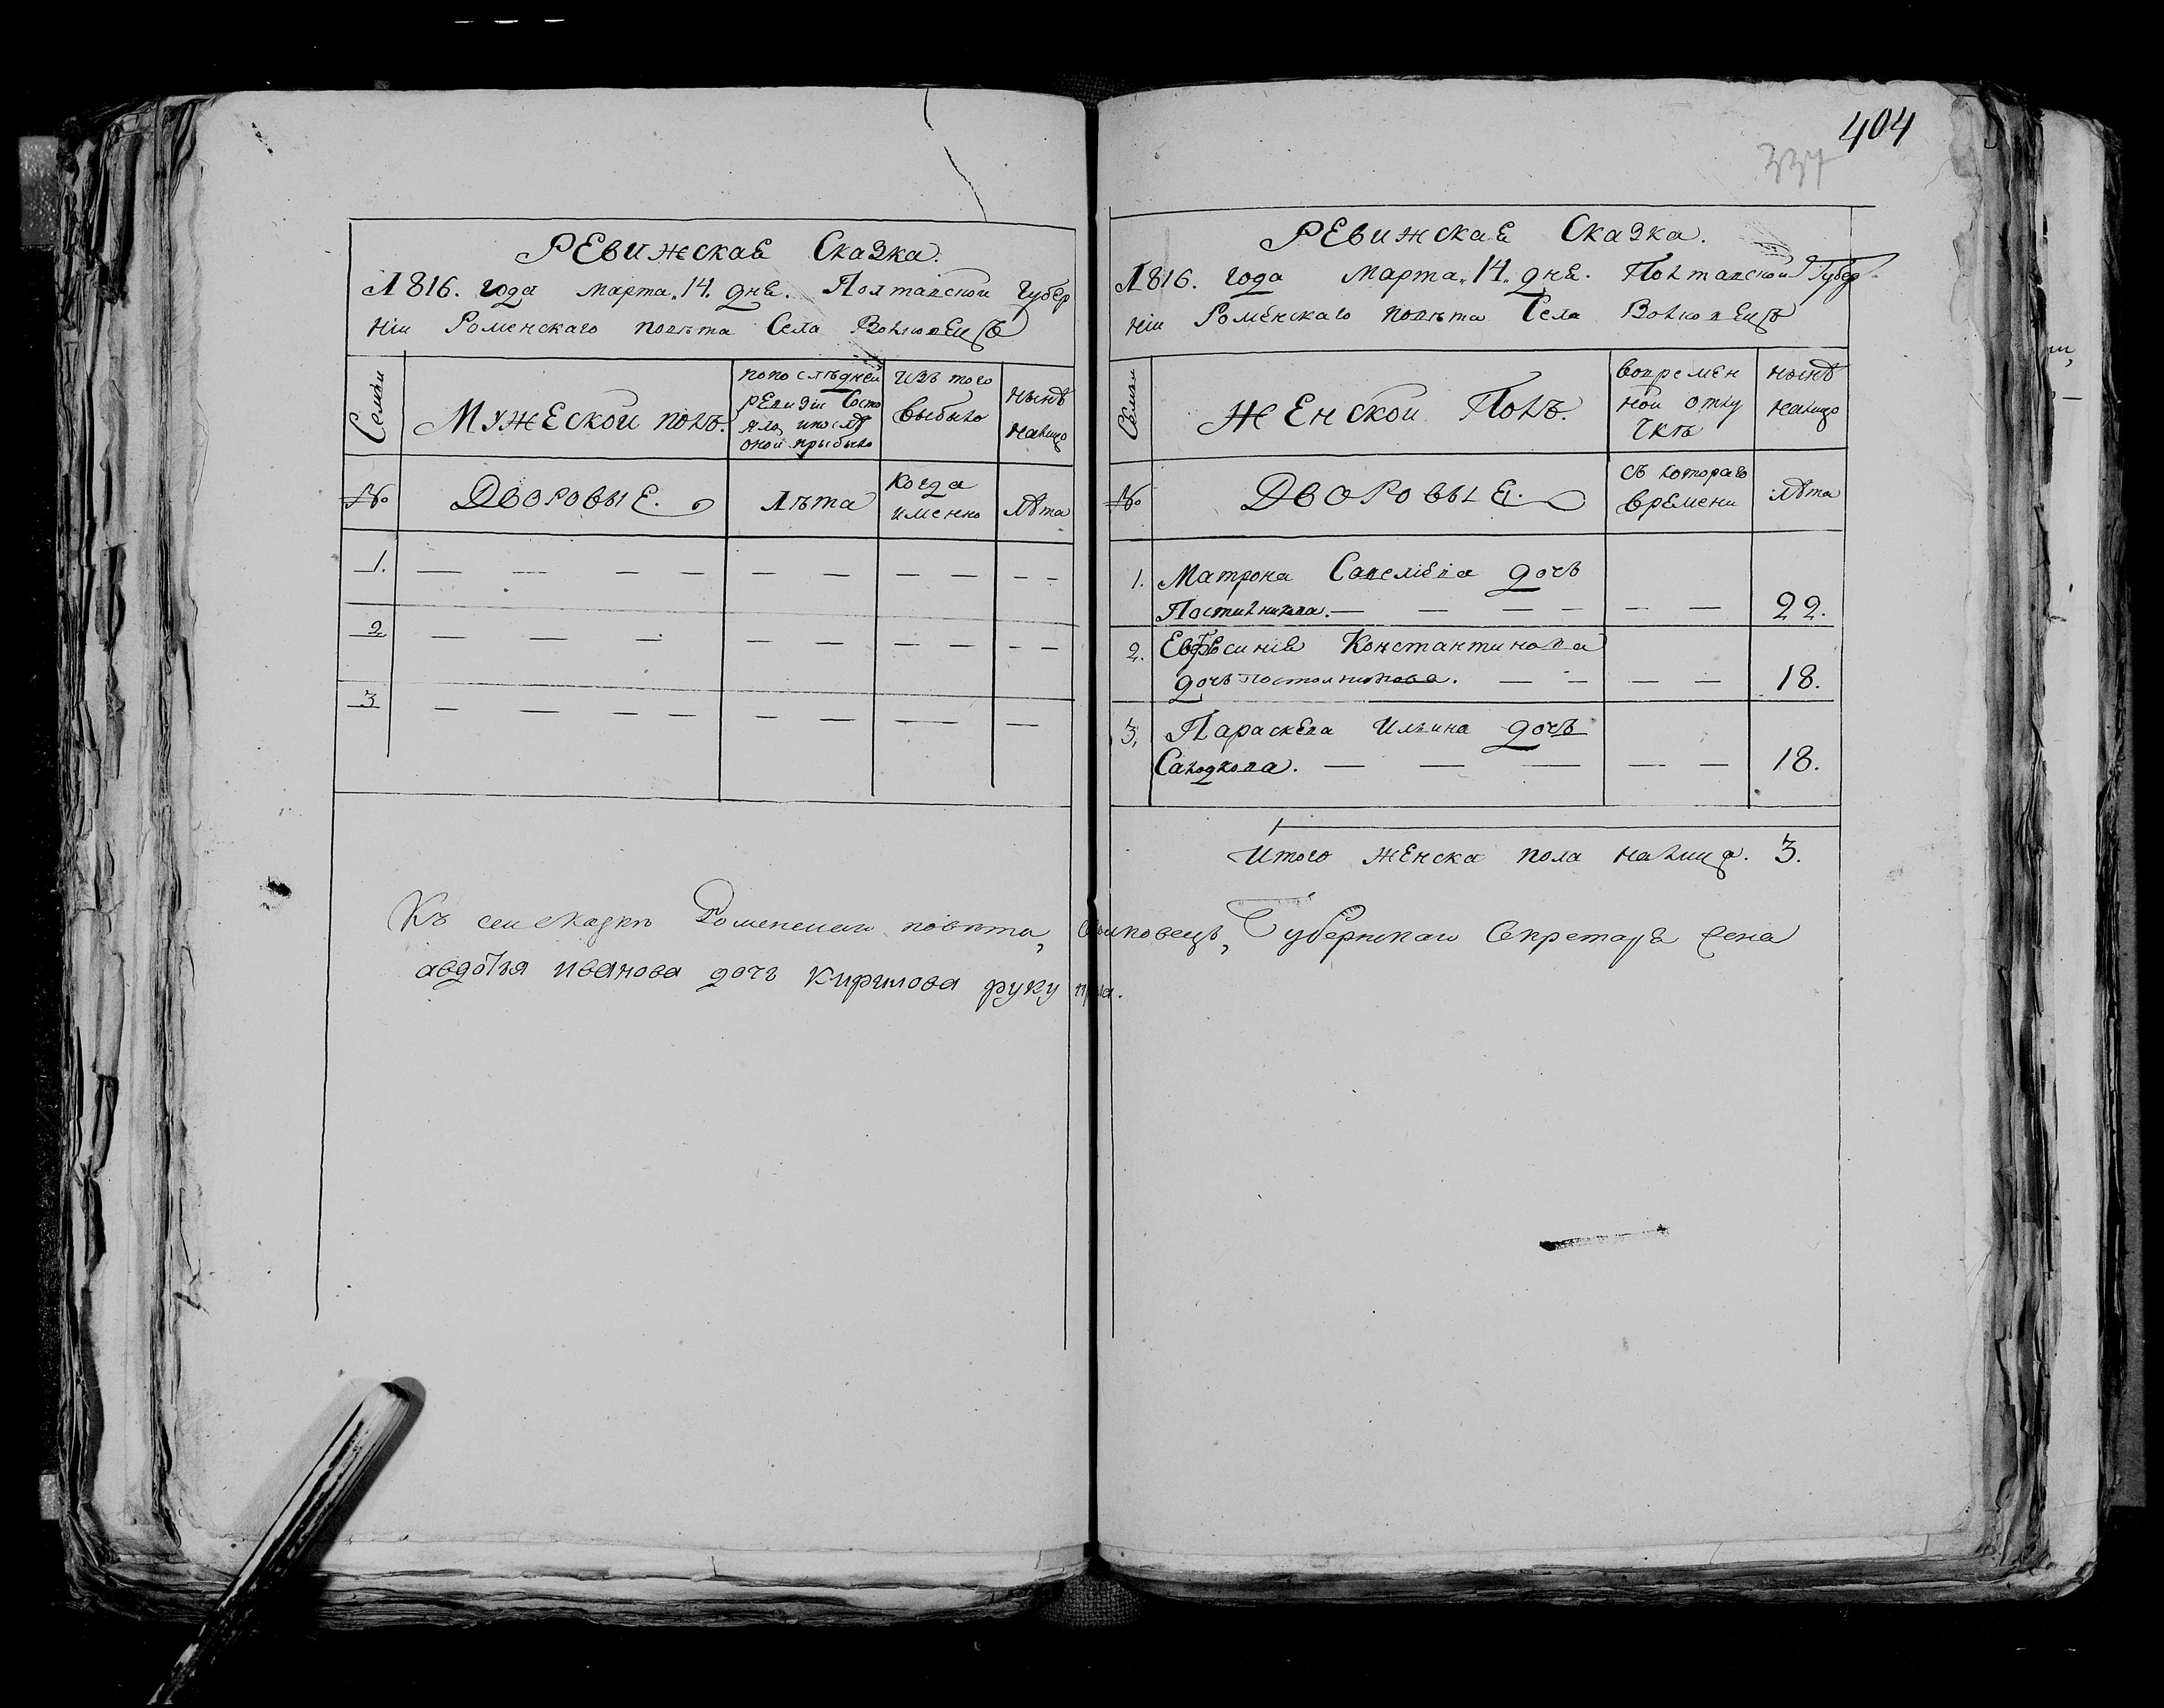 РЕвижская Сказка.
1816. года марта 14. дня. Полтавской Губер
ніи Роменского повѣта Села Волковецъ
Семьи
Мужеской полъ.
попослѣдней
ревизіи Состо
яло, ипослѣ
оной прыбыло
Изъ того
выбыло
нынѣ
налицо
№
Дворовые.
Лѣта
Когда
именно
лѣта
1.
2
3
404
337
РЕвижская Сказка.
1816. года Марта 14. дня. Полтавской Губер
ніи Роменскаго повѣта Села Волковецъ
Семьи
Женской Полъ.
вовремен
ной отлу
чкѣ
нынѣ
налицо
№
Дворовые.
съ котораго
времени
лѣта
1. Матрона Савеліева дочь
Постилникова. 22.
2. Евфросинія Константинова
дочь постолникова. 18.
3. Параскева Ильина дочь
Салодкова. 18.
Итого женска пола налицо. 3.
Къ сей сказкѣ Роменскаго повѣта, Волковецъ, Губернскаго Секретаря жена
авдотья иванова дочь Кирилова руку